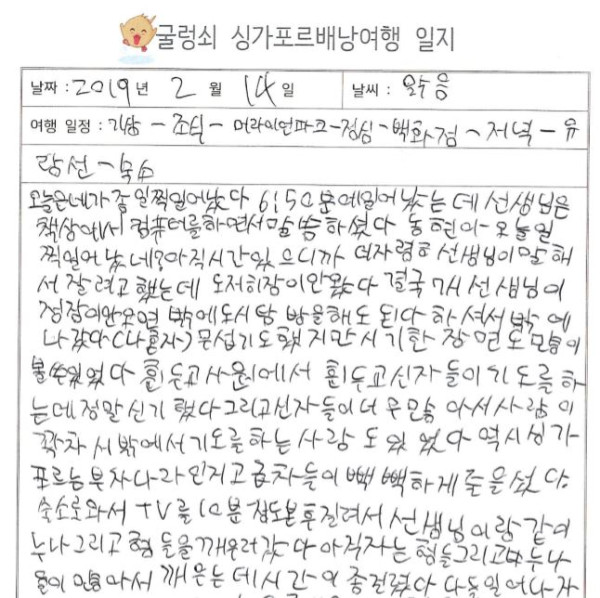 굴렁쇠 싱가포르배낭여행 일지
날짜 : 2019 년 2 월 14 일 날씨 :
여행 일정 : 기상 - 조식 - 머라이언파크 - 점심 - 백화점 - 저녁 - 유
람선 - 숙소
오늘은네가 종일찍일어났다 6:50분에일어났는데 선생님은
책상에서 컴퓨터를하면서말씀하셨다 동현이~오늘일
찍일어났네?아직시간있으니까 더자령ㅎ선생님이말해
서 잘려고했는데 도저히잠이안왔다 결국 7시 선생님이
정잠이안오면 밖에도시담방을해도 된다 하셔서밖에
나갔다(나혼자)무섭기도했지만시기한 장면도 많이
볼수있었다 흰두고사원에서 흰두고신자들이기도를하
는데정말신기했다그리고신자들이너무많아서사람이
꽉차서밖에서기도를하는사람도있었다역시싱가
포르는부자나라인지고급차들이빽빽하게줄을섰다.
숙소로와서 TV를10분정도본후질려서선생님이랑같이
누나그리고형들을깨우러갔다아직자는형들그리고누나
들이많아서깨우는데시간이좀걸렸다다들일어나자